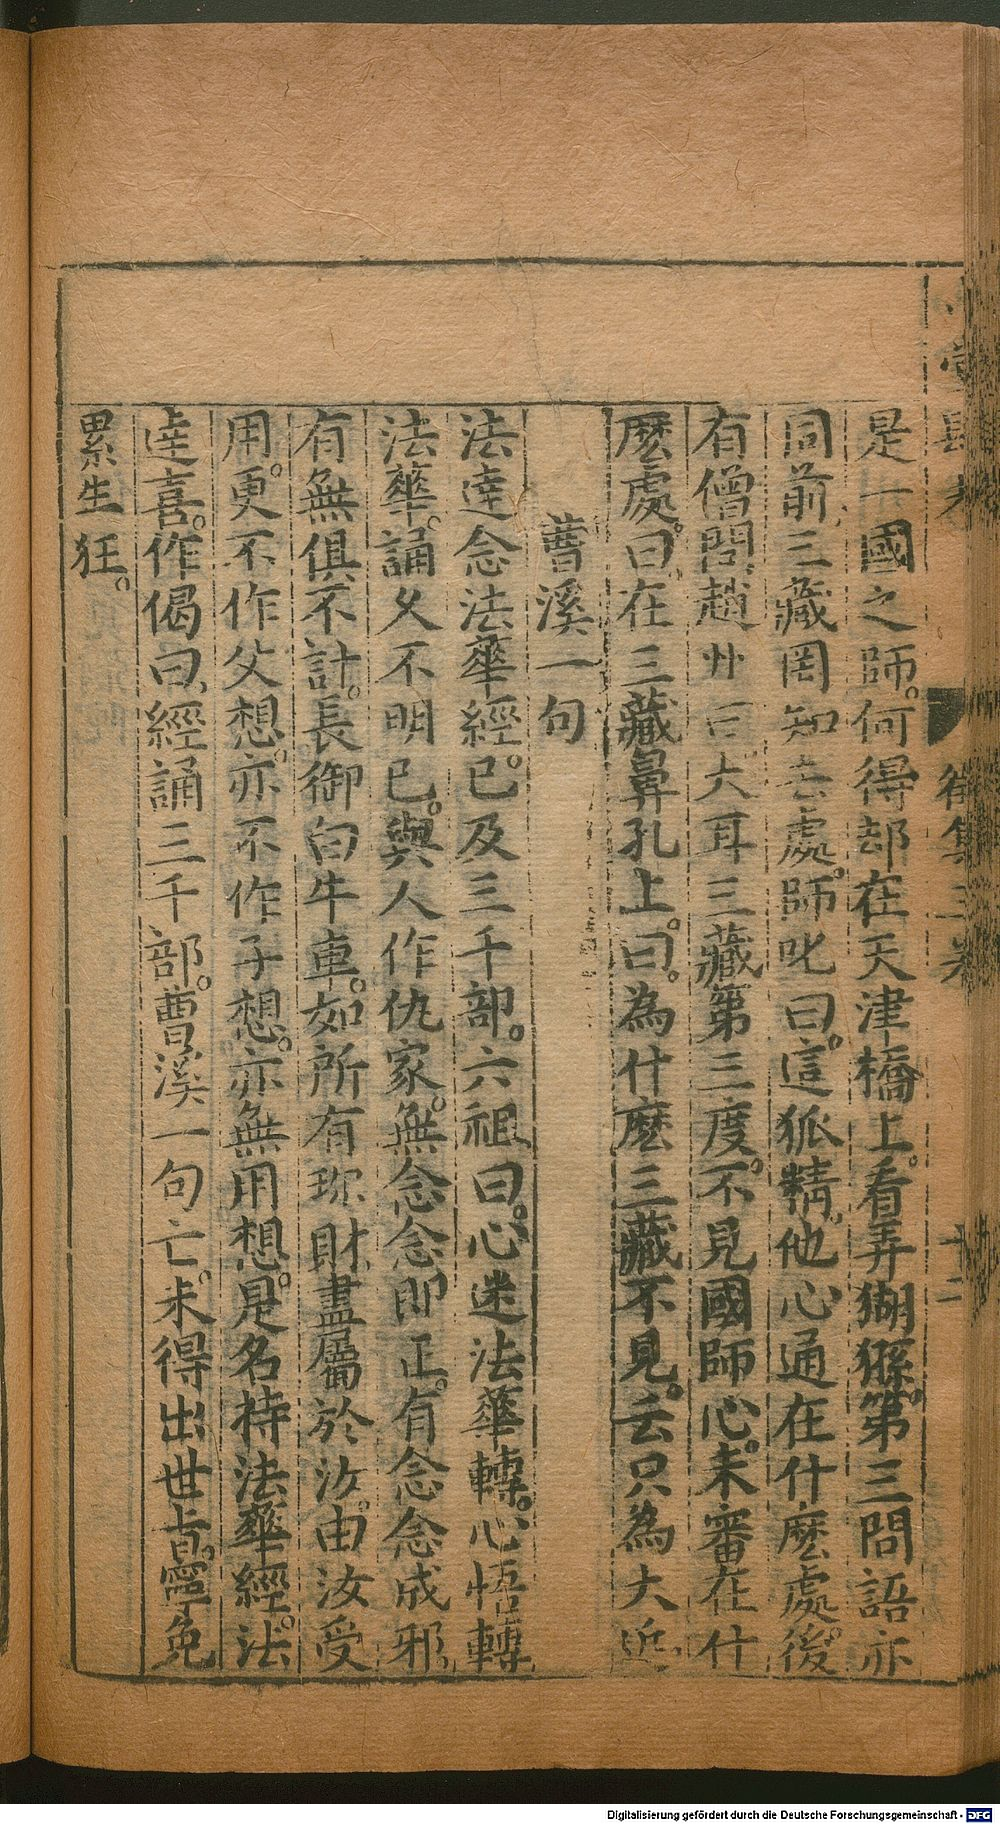 是一國之師。何得却在天津橋上。看弄猢猻。第三問語亦
同前三藏罔知去處。師叱曰。這狐精。他心通在什麽處。後
有僧問趙州曰大耳三藏第三度。不見國師心。未審在什
麽處。曰。在三藏鼻孔上。曰。為什麽三藏不見。云只為大近
曹溪一句
法達念法華經。已及三千部。六祖曰。心迷法華轉。心悟轉
法華。誦久不明已。與人作仇家。無念念即正。有念念成邪
有無俱不計。長御白牛車。如所有珎財盡屬於汝。由汝受
用。更不作父想。亦不作子想。亦無用想。是名持法華經。法
達喜。作偈曰。經誦三千部。曹溪一句亡。未得出世旨。寧免
累生狂。
Digitalisierung gefördert durch die Deutsche Forschungsgemeinschaft - DFG